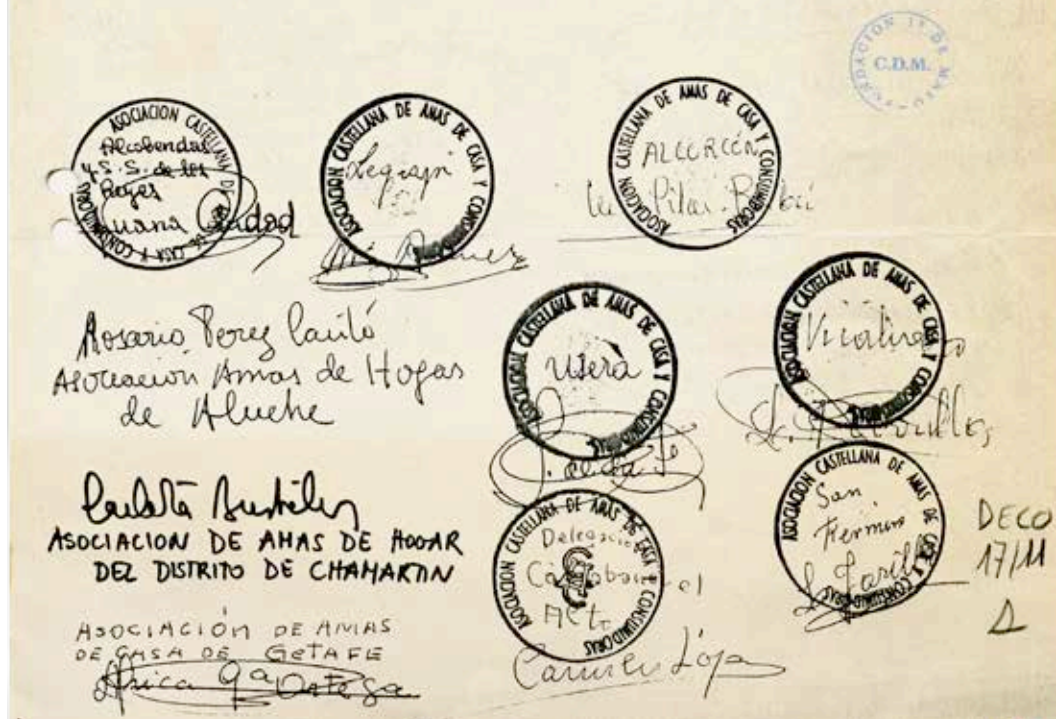 FUNDACIÓN 1º DE MAYO
C.D.M.
ASOCIACION CASTELLANA DE AMAS DE CASA Y CONSUMIDORAS
Alcobendas
y S.S. de los
Reyes
Juana Ciudad
ASOCIACION CASTELLANA DE AMAS DE CASA Y CONSUMIDORAS
Legazpi
ASOCIACION CASTELLANA DE AMAS DE CASA Y CONSUMIDORAS
ALCORCÓN
Pilar
Rosario Perez
Asociación Amas de Hogar
de Aluche
ASOCIACION CASTELLANA DE AMAS DE CASA Y CONSUMIDORAS
Usera
ASOCIACION CASTELLANA DE AMAS DE CASA Y CONSUMIDORAS
Vicalvaro
ASOCIACION DE AMAS DE HOGAR
DEL DISTRITO DE CHAMARTIN
ASOCIACION CASTELLANA DE AMAS DE CASA Y CONSUMIDORAS
Delegación
Carabanchel
Alto
Carmen López
ASOCIACION CASTELLANA DE AMAS DE CASA Y CONSUMIDORAS
San
Fermin
DECO
17/11
ASOCIACIÓN DE AMAS
DE CASA DE GETAFE
Africa Gª Ortega